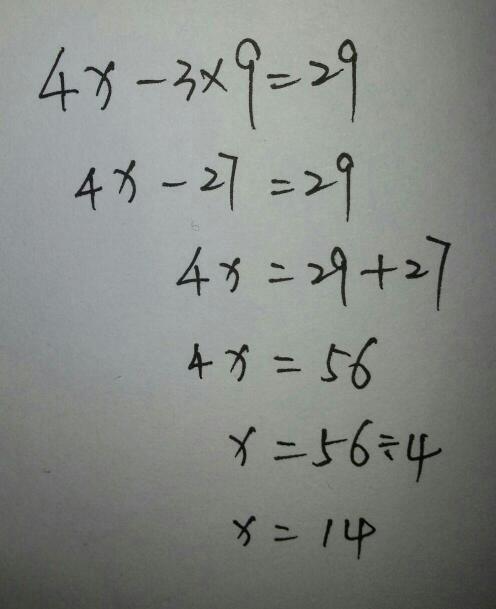 4x-3×9=29
4x-27=29
4x=29+27
4x=56
x=56÷4
x=14